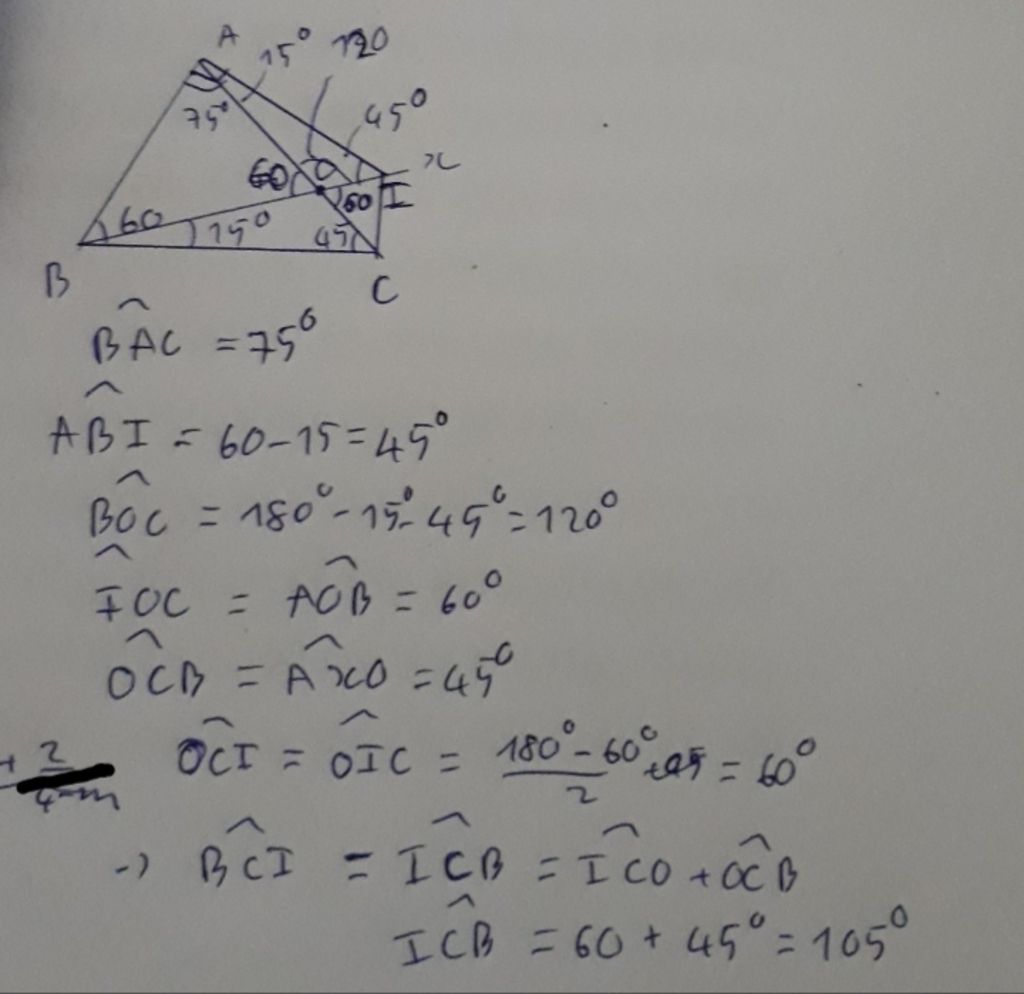 A
15° 120
75° 45°
60 x
60 I
60 15° 45
B C
BÂC = 75°
AB̂I = 60-15=45°
BÔC = 180°-15°-45°=120°
IÔC = AÔB = 60°
OĈB = Ax̂O = 45°
OĈI = OÎC = (180°-60°)/2 = 60°
-> BĈI = IĈB = IĈO + OĈB
IĈB = 60 + 45° = 105°